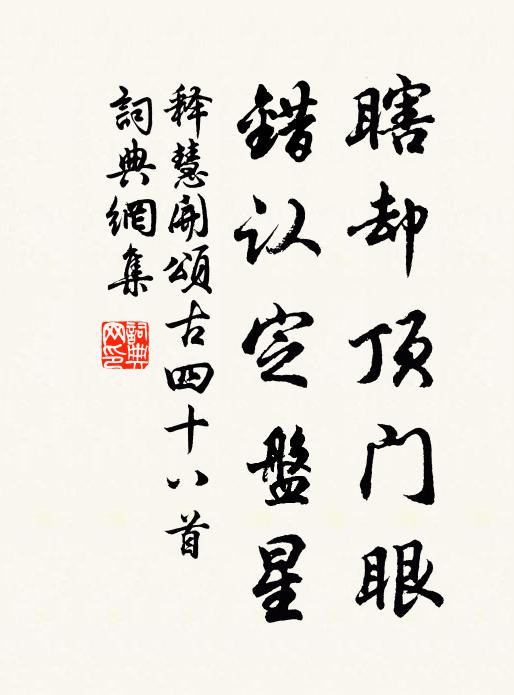 瞎却顶门眼
错认定盤星
释慧開頌古四十八首
詞典網集
詞典
网印